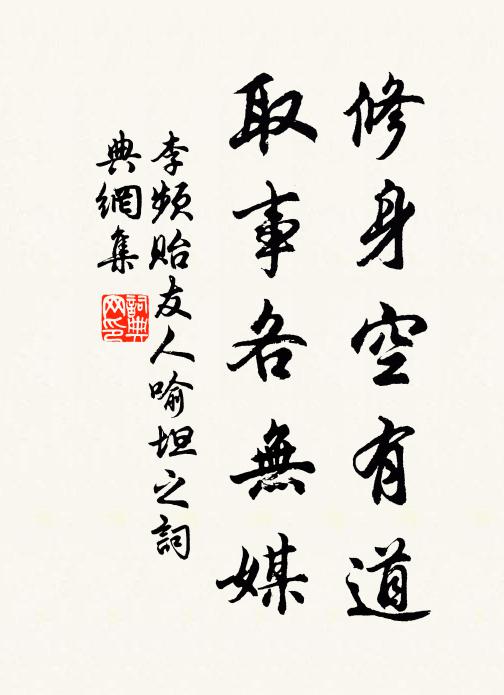 修身空有道
取事各無媒
李頻貽友人喻坦之詞
典網集
詞典
网印